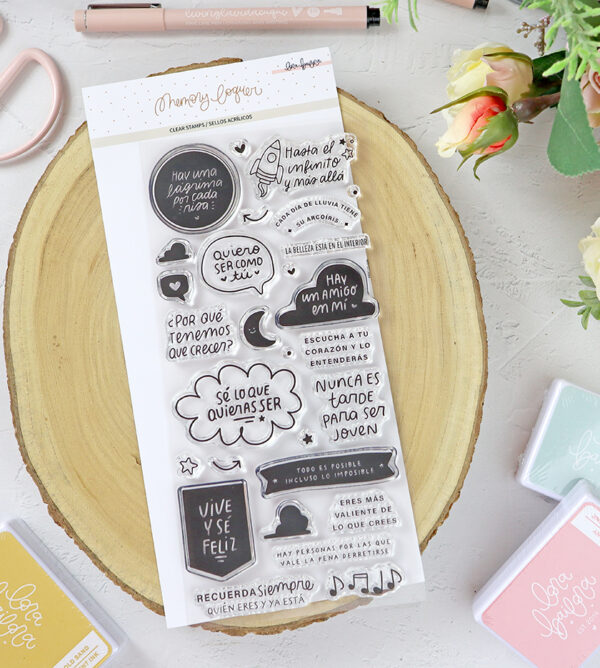 living la vida loque
lora bailora
Memory loquer
CLEAR STAMPS / SELLOS ACRÍLICOS
HAY UNA
lágrima
POR CADA
risa
Hasta el
infinito
y más allá
CADA DÍA DE LLUVIA TIENE
SU ARCOÍRIS
LA BELLEZA ESTÁ EN EL INTERIOR
QUIERO
SER COMO
tú
HAY
UN AMIGO
EN MÍ
¿POR QUÉ
TENEMOS
QUE CRECER?
ESCUCHA A TU
CORAZÓN Y LO
ENTENDERÁS
SÉ LO QUE
QUIERAS SER
NUNCA ES
tarde
PARA SER
JOVEN
TODO ES POSIBLE
INCLUSO LO IMPOSIBLE
VIVE
Y SÉ
FELIZ
ERES MÁS
VALIENTE DE
LO QUE CREES
HAY PERSONAS POR LAS QUE
VALE LA PENA DERRETIRSE
RECUERDA siempre
QUIÉN ERES Y YA ESTÁ
lora
bailora
lora
bailora